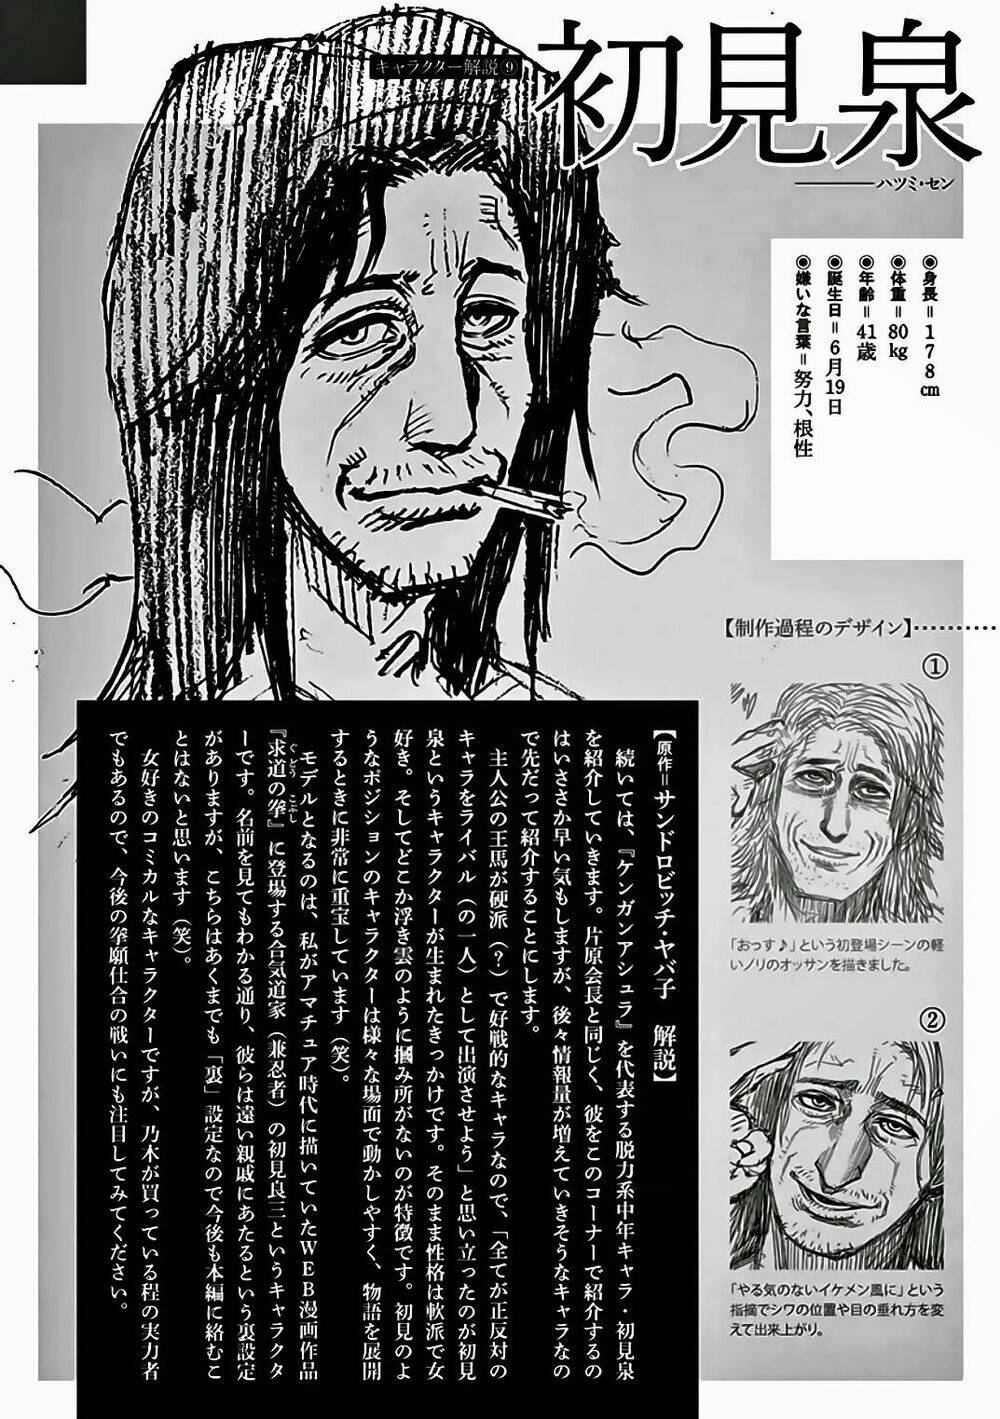 キャラクター解説⑨
初見泉
ハツミ・セン
◉身長＝178cm
◉体重＝80kg
◉年齢＝41歳
◉誕生日＝6月19日
◉嫌いな言葉＝努力、根性
【制作過程のデザイン】‥‥‥‥‥
①
「おっす♪」という初登場シーンの軽
いノリのオッサンを描きました。
②
「やる気のないイケメン風に」という
指摘でシワの位置や目の垂れ方を変
えて出来上がり。
【原作＝サンドロビッチ・ヤバ子　解説】
続いては、『ケンガンアシュラ』を代表する脱力系中年キャラ・初見泉
を紹介していきます。片原会長と同じく、彼をこのコーナーで紹介するの
はいささか早い気もしますが、後々情報量が増えていきそうなキャラなの
で先だって紹介することにします。
主人公の王馬が硬派（？）で好戦的なキャラなので、「全てが正反対の
キャラをライバル（の一人）として出演させよう」と思い立ったのが初見
泉というキャラクターが生まれたきっかけです。そのまま性格は軟派で女
好き。そしてどこか浮き雲のように摑み所がないのが特徴です。初見のよ
うなポジションのキャラクターは様々な場面で動かしやすく、物語を展開
するときに非常に重宝しています（笑）。
モデルとなるのは、私がアマチュア時代に描いていたWEB漫画作品
『求道の拳』に登場する合気道家（兼忍者）の初見良三というキャラクタ
ーです。名前を見てもわかる通り、彼らは遠い親戚にあたるという裏設定
がありますが、こちらはあくまでも「裏」設定なので今後も本編に絡むこ
とはないと思います（笑）。
女好きのコミカルなキャラクターですが、乃木が買っている程の実力者
でもあるので、今後の拳願仕合の戦いにも注目してみてください。